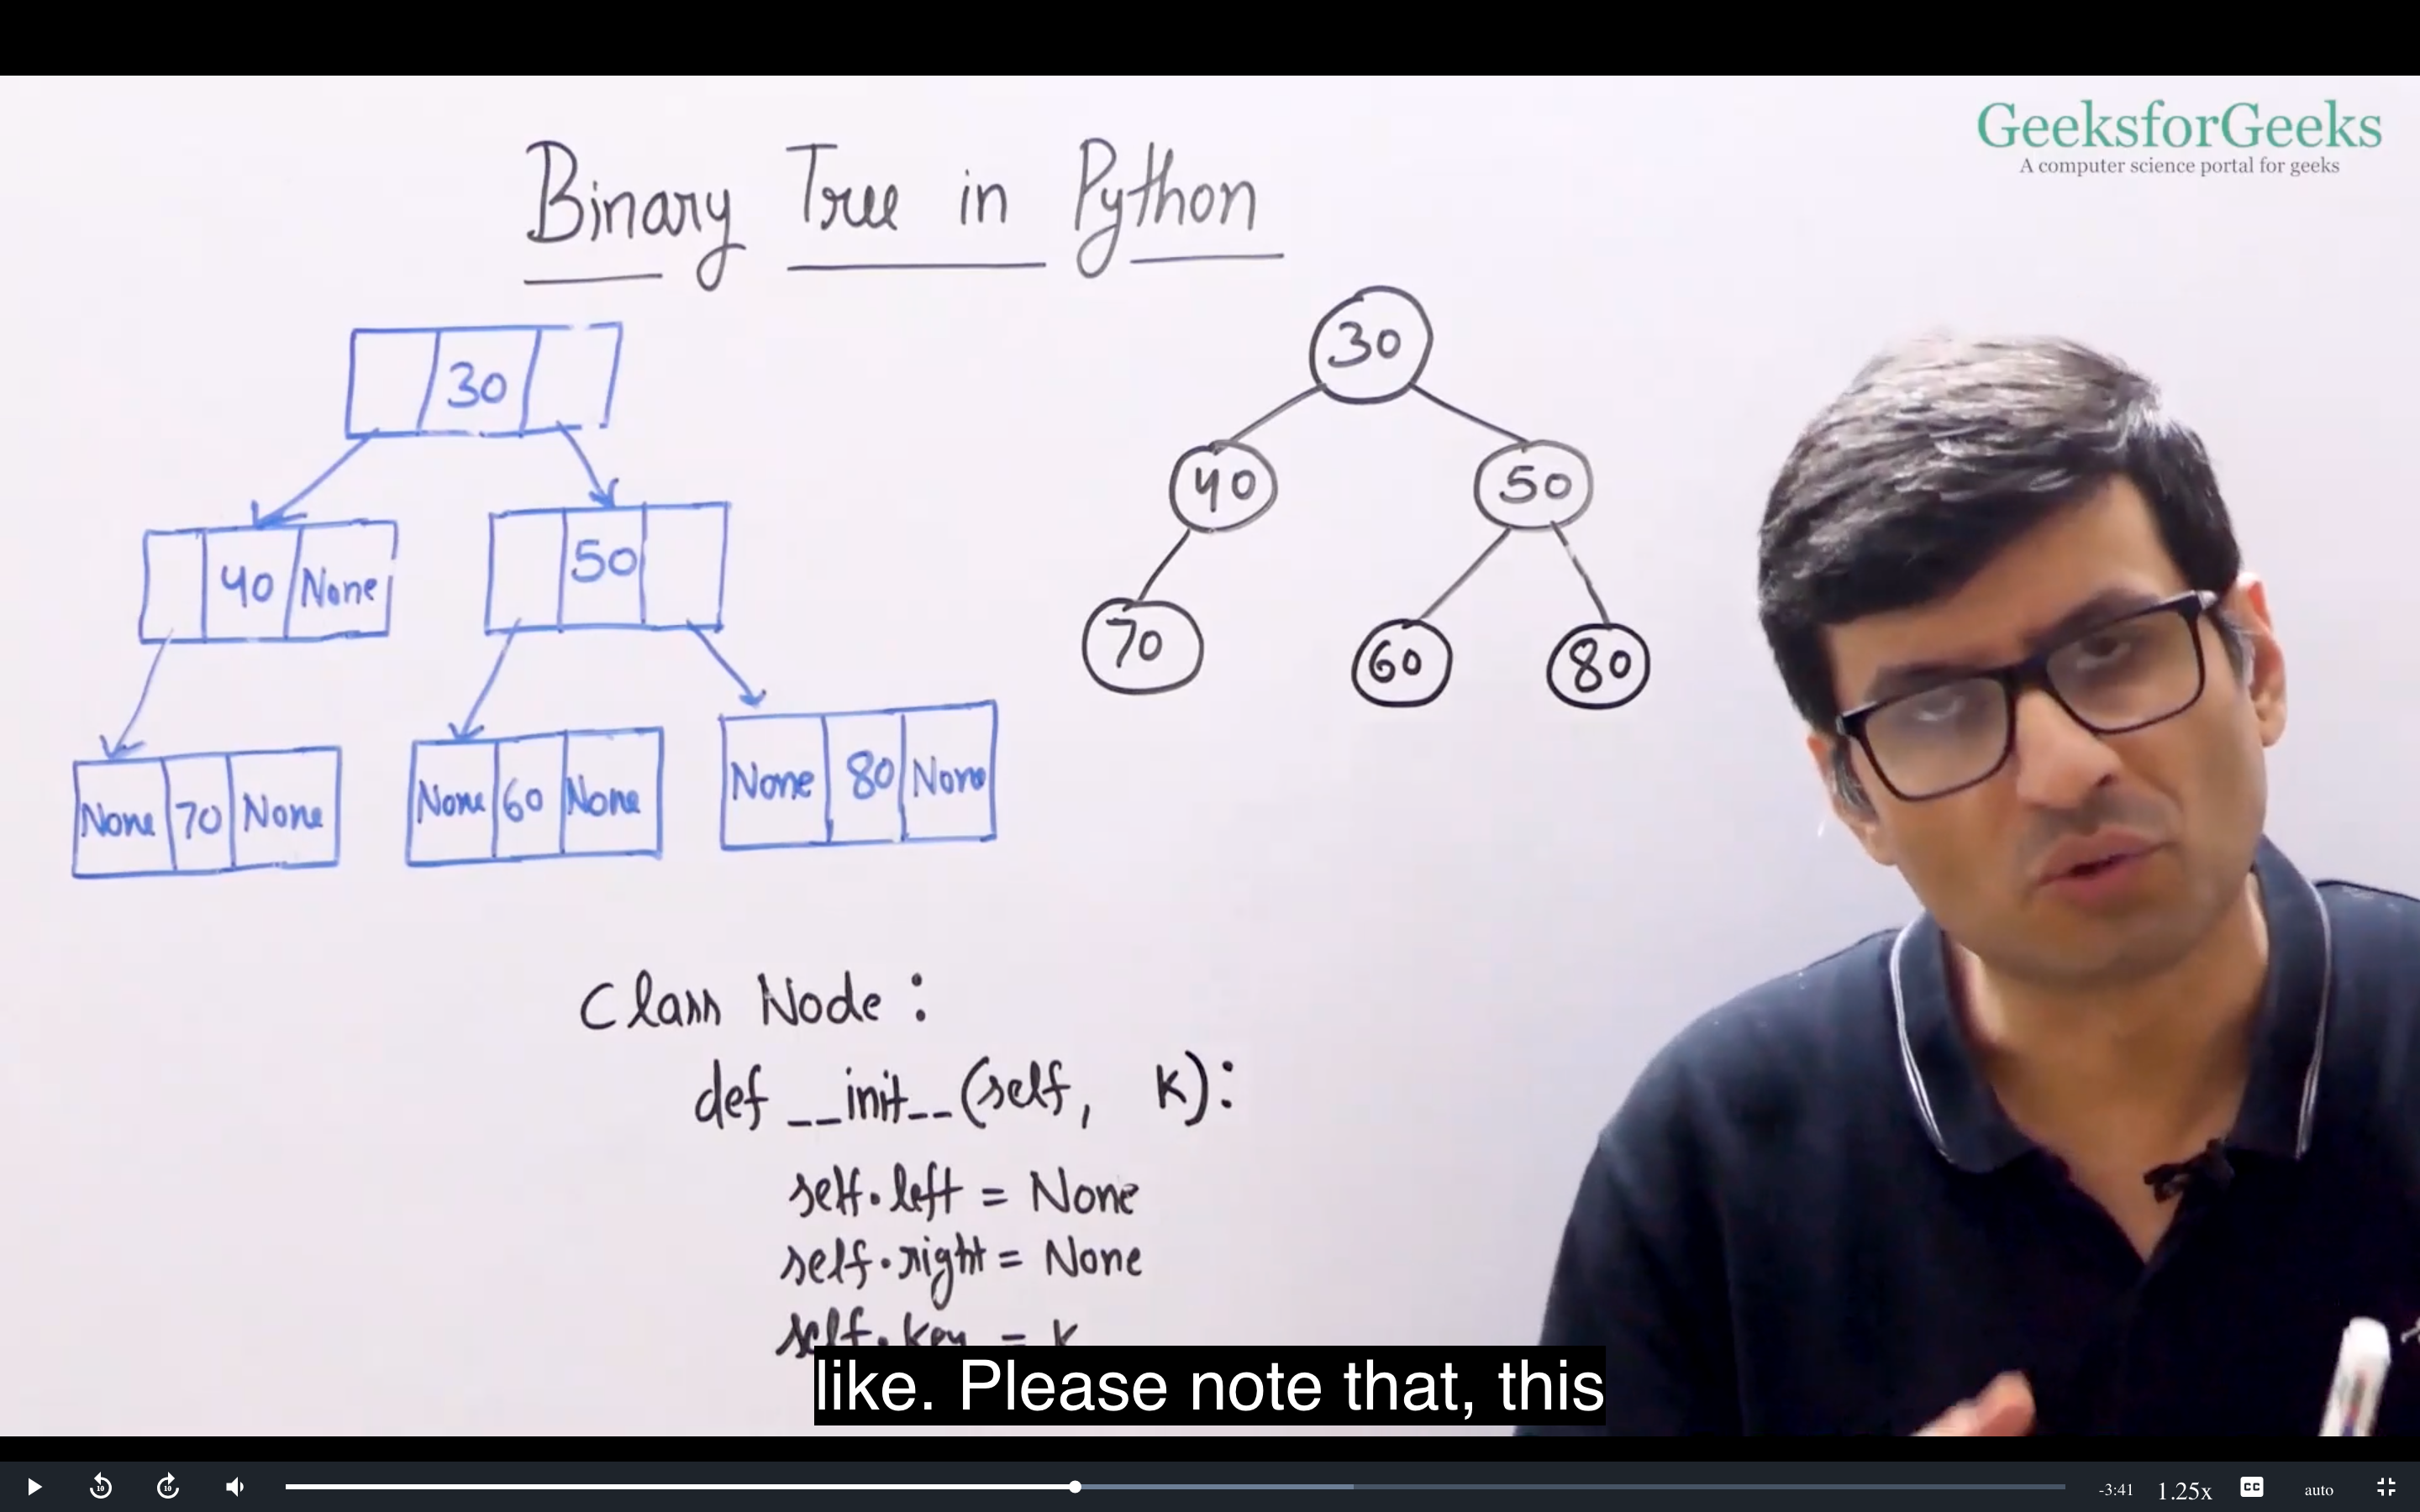 GeeksforGeeks
A computer science portal for geeks
Binary Tree in Python
30
30
40 None
50
40
50
None 70 None
None 60 None
None 80 None
70
60
80
Class Node :
def __init__(self, K):
self.left = None
self.right = None
self.key = K
like. Please note that, this
10
10
-3:41
1.25x
CC
auto